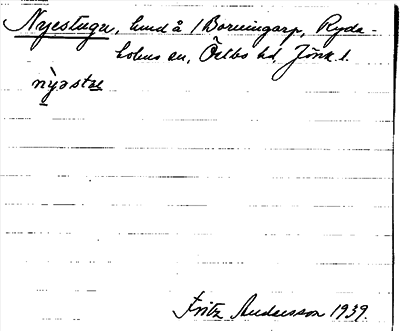 Nyestuga, lund å 1 Borringarp, Ryda-
holms sn, Östbo hd, Jönk. l.
nỳəstæ
Fritz Andersson 1939.